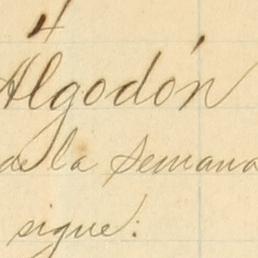 4
Algodón
de la Semana
sigue: